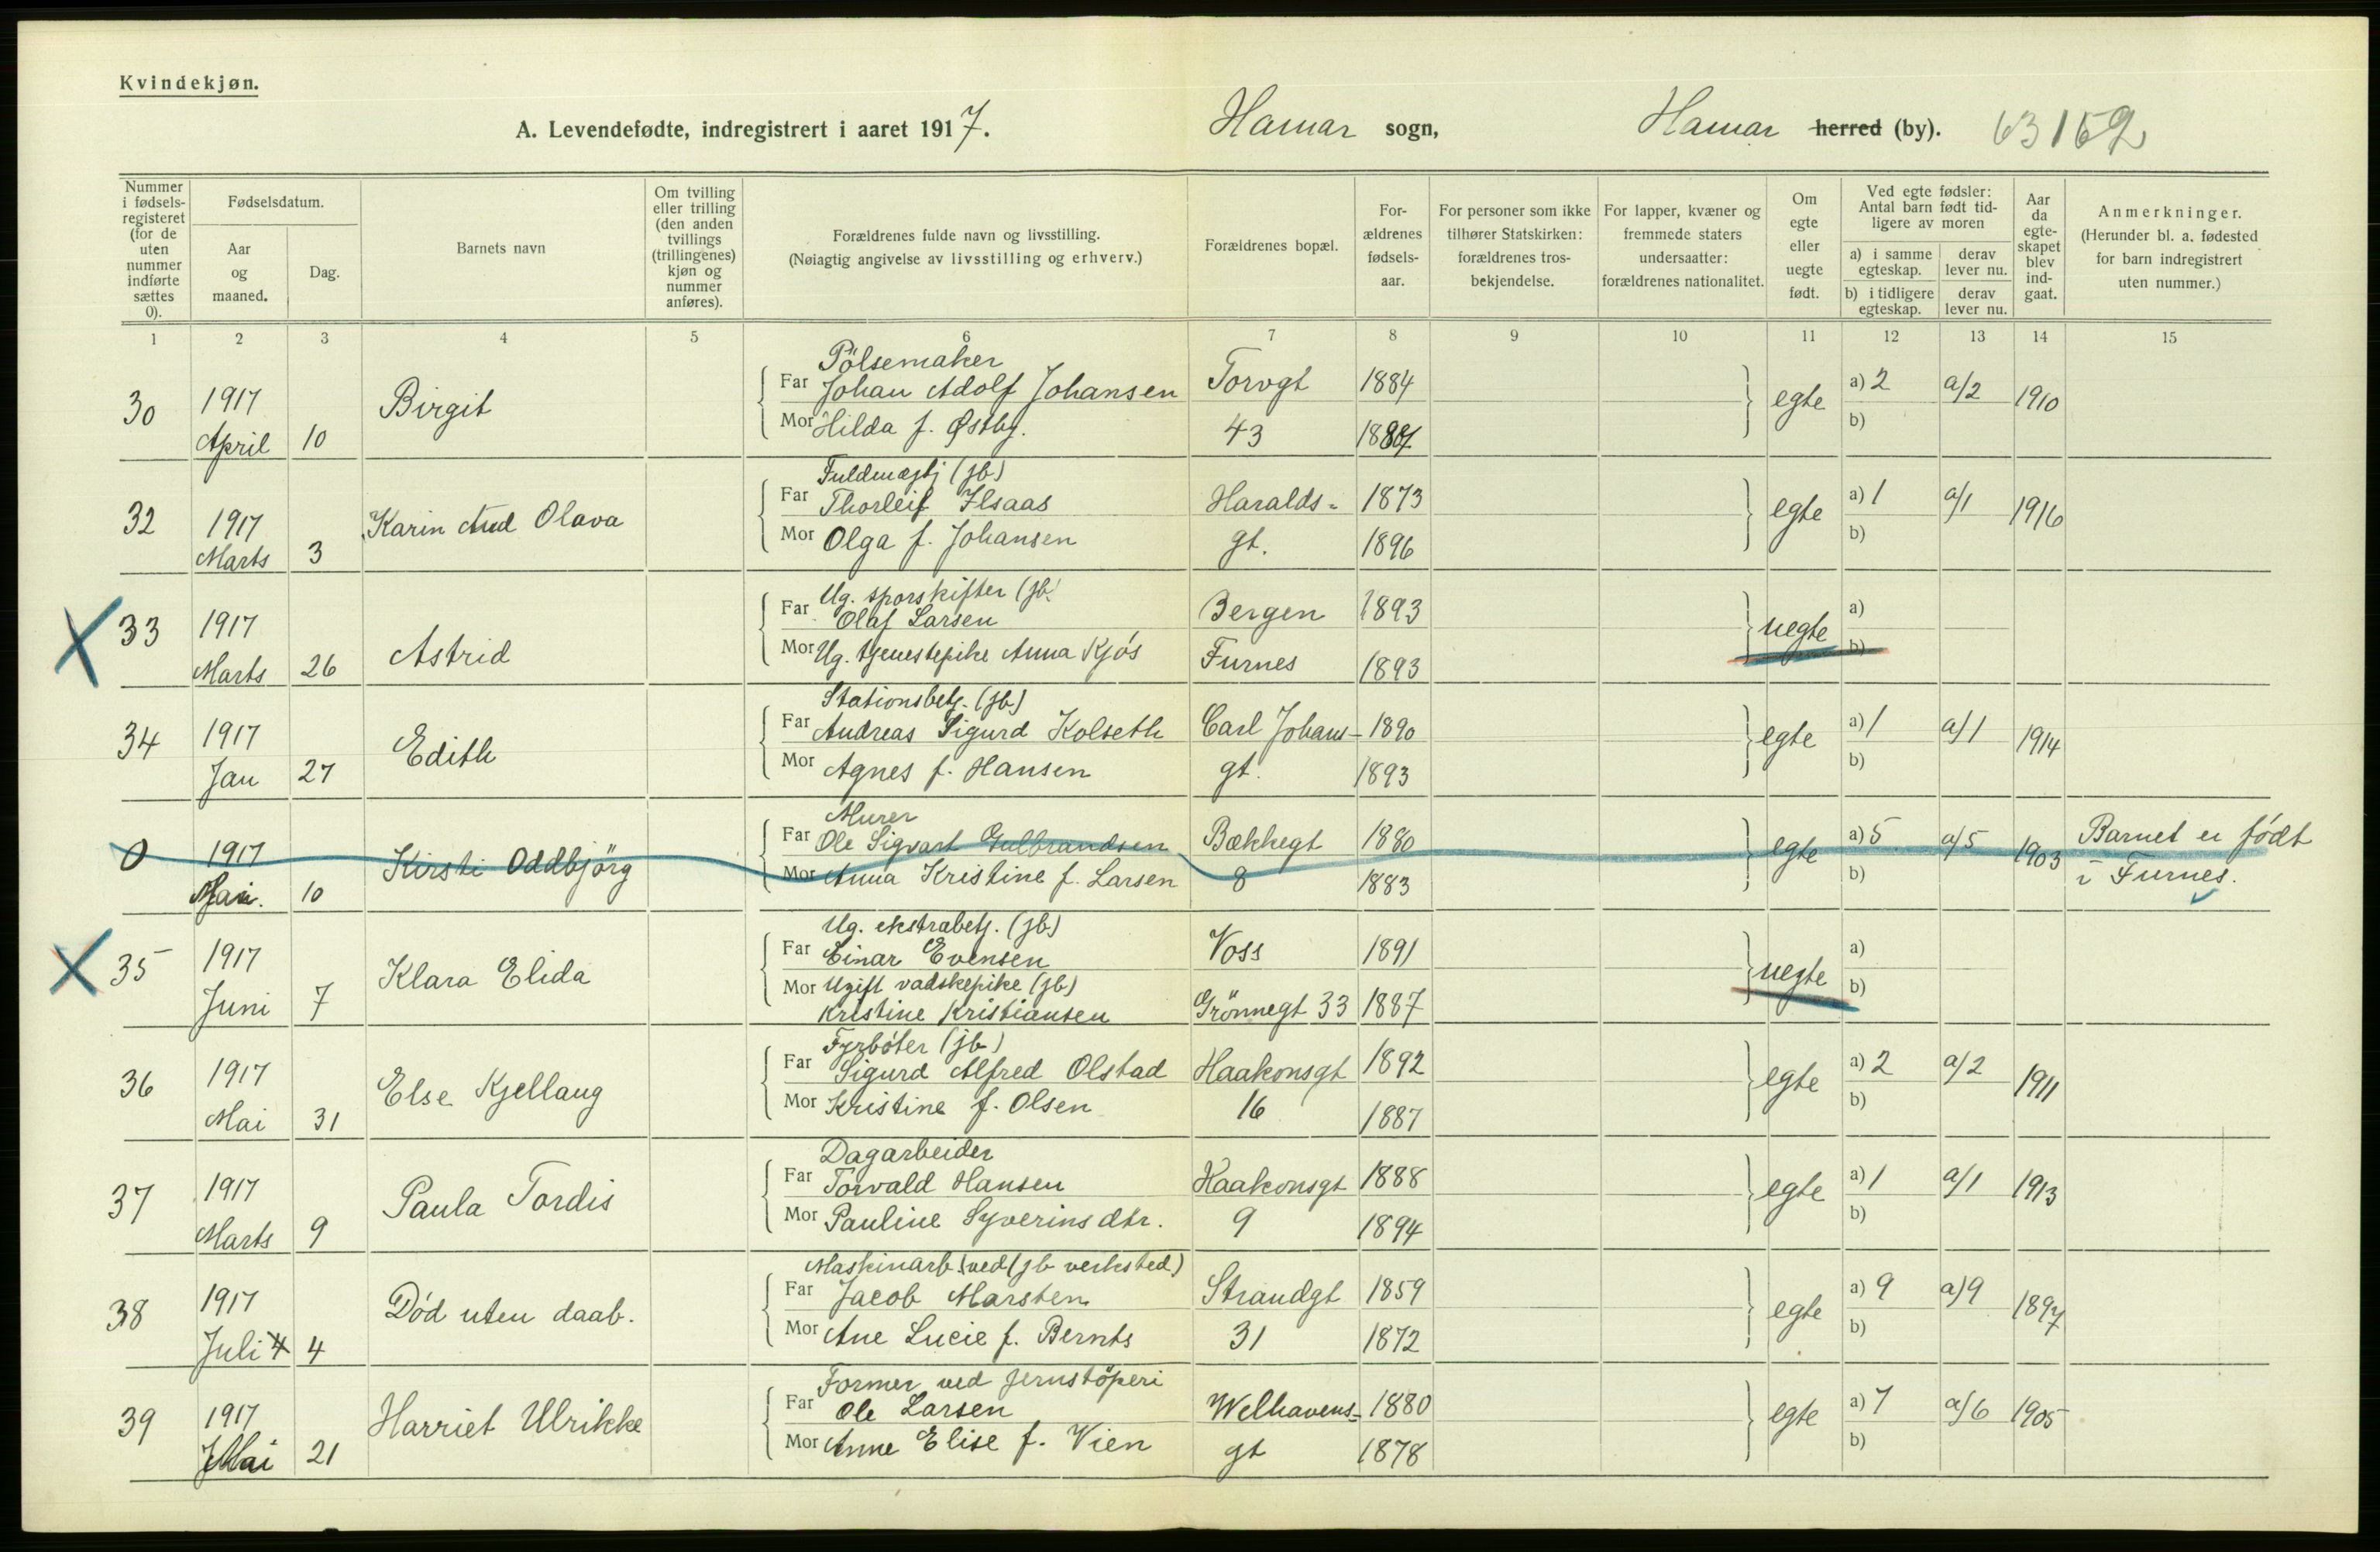 Kvindekjøn.
A. Levendefødte, indregistrert i aaret 1917. Hamar sogn, Hamar herred (by). 63152
Nummer i fødsels-registeret (for de uten nummer indførte sættes 0).
Fødselsdatum.
Aar og maaned.
Dag.
Barnets navn
Om tvilling eller trilling (den anden tvillings (trillingenes) kjøn og nummer anføres).
Forældrenes fulde navn og livsstilling.
(Nøiagtig angivelse av livsstilling og erhverv.)
Forældrenes bopæl.
For-ældrenes fødsels-aar.
For personer som ikke tilhører Statskirken: forældrenes tros-bekjendelse.
For lapper, kvæner og fremmede staters undersaatter: forældrenes nationalitet.
Om egte eller uegte født.
Ved egte fødsler: Antal barn født tid-ligere av moren
a) i samme egteskap.
derav lever nu.
b) i tidligere egteskap.
derav lever nu.
Aar da egte-skapet blev ind-gaat.
Anmerkninger.
(Herunder bl. a. fødested for barn indregistrert uten nummer.)
1 2 3 4 5 6 7 8 9 10 11 12 13 14 15
Pölsemaker
30 1917 Birgit Far Johan Adolf Johansen Torvgt 1884 egte a) 2 a/2 1910
April 10 Mor Hilda f. Østby. 43 b)
Fuldmægtj (jb)
32 1917 Karin Aud Olava Far Thorleif Ilsaas Haralds- 1873 egte a) 1 a/1 1916
Marts 3 Mor Olga f. Johansen gt. 1896 b)
Ug. sporskifter (jb)
33 1917 Astrid Far Olaf Larsen Bergen 1893 uegte a)
Marts 26 Mor Ug. tjenestepike Anna Kjøs Furnes 1893 b)
Stationsbetj. (jb)
34 1917 Edith Far Andreas Sigurd Kolseth Carl Johans- 1890 egte a) 1 a/1 1914
Jan 27 Mor Agnes f. Hansen gt. 1893 b)
Murer
0 1917 Kirsti Oddbjörg Far Ole Sigvart Gulbrandsen Bækkegt 1880 egte a) 5 a/5 1903 Barnet er född
Mai. 10 Mor Anna Kristine f. Larsen 8 1883 b) i Furnes.
Ug. ekstrabetj. (jb)
35 1917 Klara Elida Far Einar Evensen Voss 1891 uegte a)
Juni 7 Mor Ugift vadskepike (jb) b)
Kristine Kristiansen Grönnegt 33 1887
Fyrböter (jb)
36 1917 Else Kjellaug Far Sigurd Alfred Olstad Haakonsgt 1892 egte a) 2 a/2 1911
Mai 31 Mor Kristine f. Olsen 16 1887 b)
Dagarbeider
37 1917 Paula Tordis Far Torvald Hansen Haakonsgt 1888 egte a) 1 a/1 1913
Marts 9 Mor Pauline Syverinsdtr. 9 1894 b)
Maskinarb. ved (jb verksted)
38 1917 Död uten daab. Far Jacob Marsten Strandgt 1859 egte a) 9 a/9 1897
Juli 4 4 Mor Ane Lucie f. Bernts 31 1872 b)
Former ved jernstöperi
39 1917 Harriet Ulrikke Far Ole Larsen Welhavens- 1880 egte a) 7 a/6 1905
Mai 21 Mor Anne Elise f. Vien gt 1878 b)